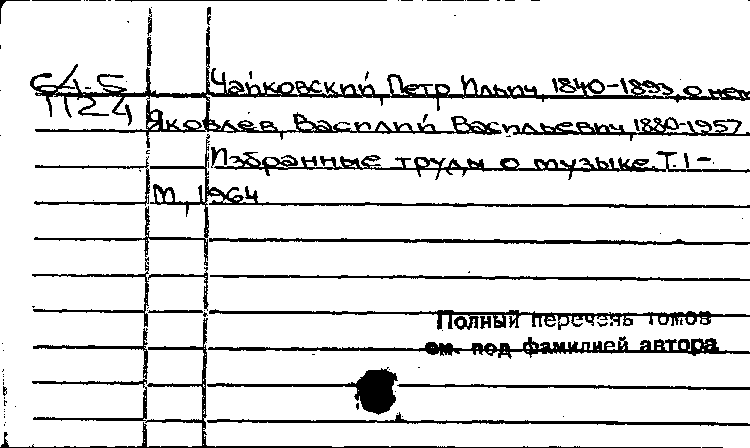 Чайковский, Петр Ильич, 1840-1893, о нем
П24
Яковлев, Василий Васильевич, 1880-1957
Избранные труды о музыке. Т.1-
М., 1964
Полный перечень томов
см. под фамилией автора